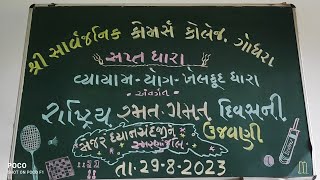 શ્રી સાર્વજનિક કોમર્સ કોલેજ, ગોધરા
સપ્ત ધારા
વ્યાયામ-યોગ-ખેલકૂદ ધારા
અંતર્ગત
રાષ્ટ્રિય રમત ગમત દિવસની
ઉજવણી
મેજર ધ્યાનચંદજીને
સ્મરણાંજલિ
તા.29-8-2023
POCO
SHOT ON POCO F1